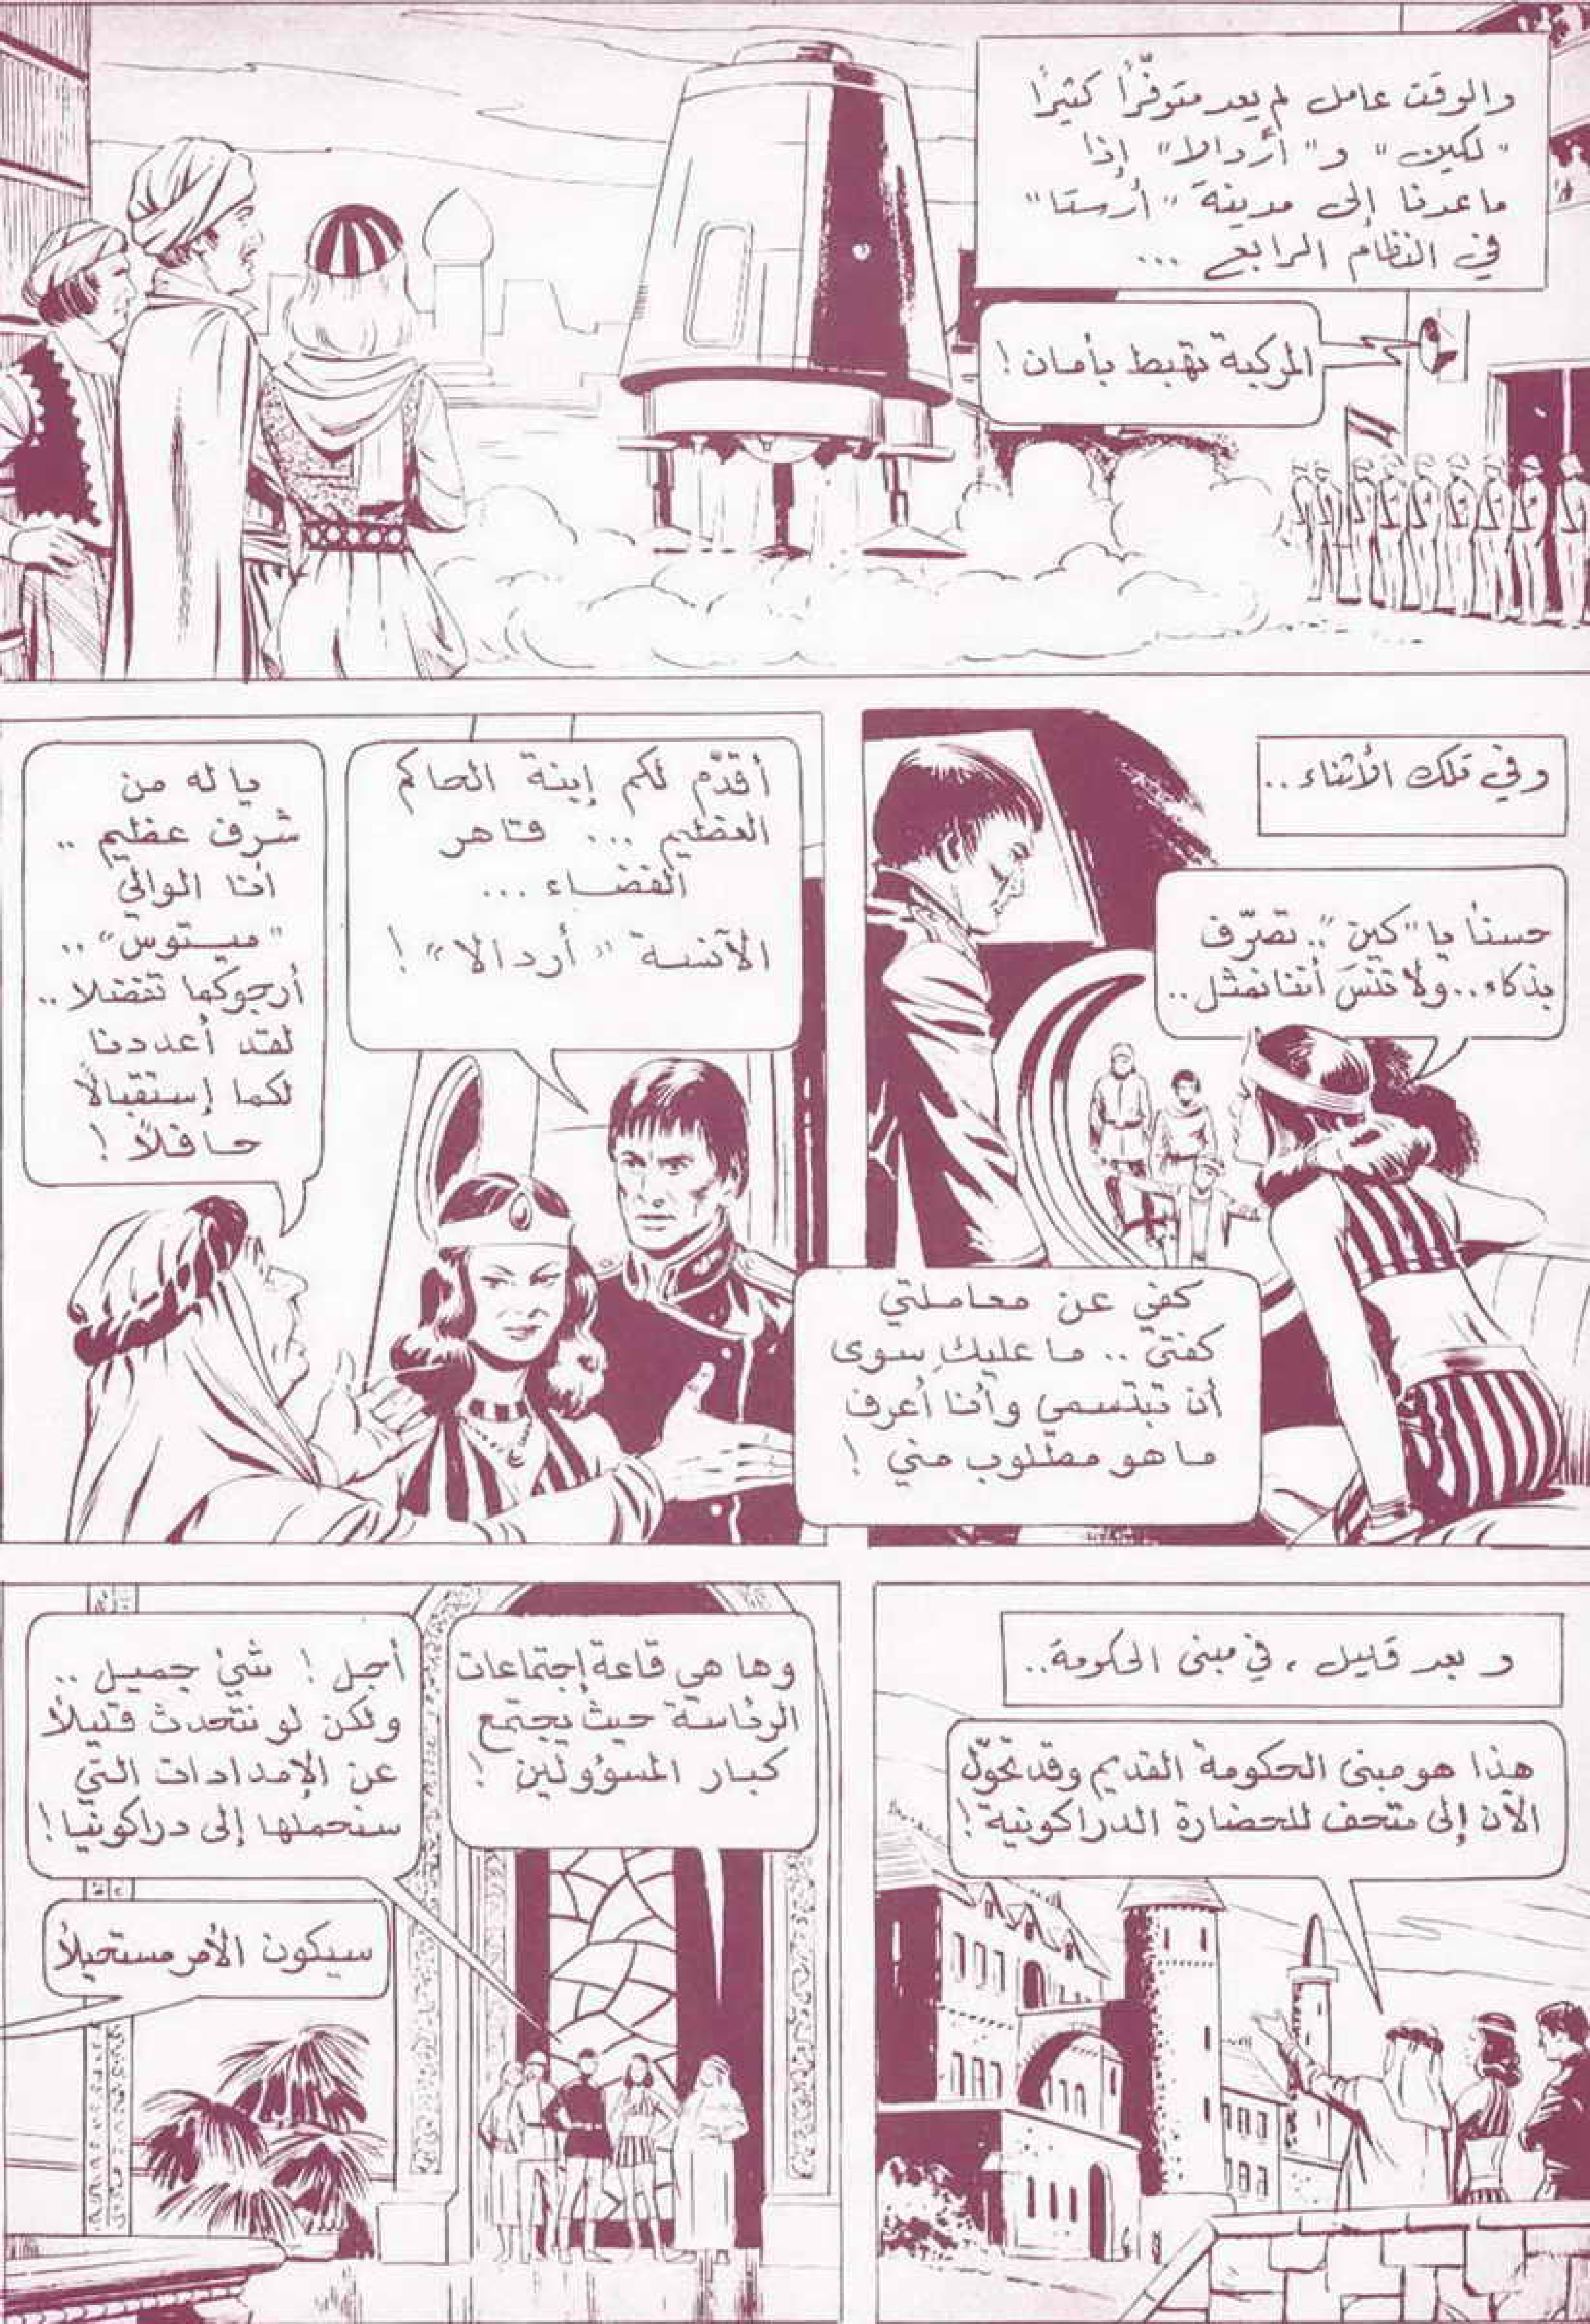 والوقت عامل لم يعد متوفّراً كثيرًا
"لكين" و "أردالا" إذا
ما عدنا إلى مدينة "أرستا"
في النظام الرابع ...
المركبة تهبط بأمان !
وفي تلك الأثناء ..
حسنًا يا "كين".. تصرّف
بذكاء.. ولا تنسَ أننا نمثل ..
كفي عن معاملتي
كفتى .. ما عليكِ سوى
أن تبتسمي وأنا أعرف
ما هو مطلوب مني !
أقدّم لكم إبنة الحاكم
العظيم ... قاهر
الفضاء ...
الآنسة "أردالا" !
يا له من
شرف عظيم ..
أنا الوالي
"ميتوس" ..
أرجوكما تفضلا ..
لقد أعددنا
لكما إستقبالاً
حافلاً !
و بعد قليل ، في مبنى الحكومة ..
هذا هو مبنى الحكومة القديم وقد تحوّل
الآن إلى متحف للحضارة الدراكونية !
وها هي قاعة إجتماعات
الرئاسة حيث يجتمع
كبار المسؤولين !
أجل ! شئ جميل ..
ولكن لو نتحدث قليلاً
عن الإمدادات التي
سنحملها إلى دراكونيا !
سيكون الأمر مستحيلاً